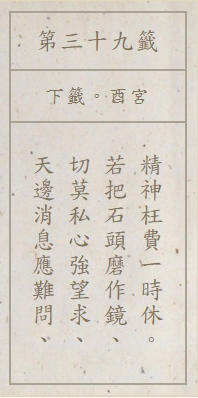 第三十九籤
下籤。酉宮
天邊消息應難問、
切莫私心強望求、
若把石頭磨作鏡、
精神枉費一時休。